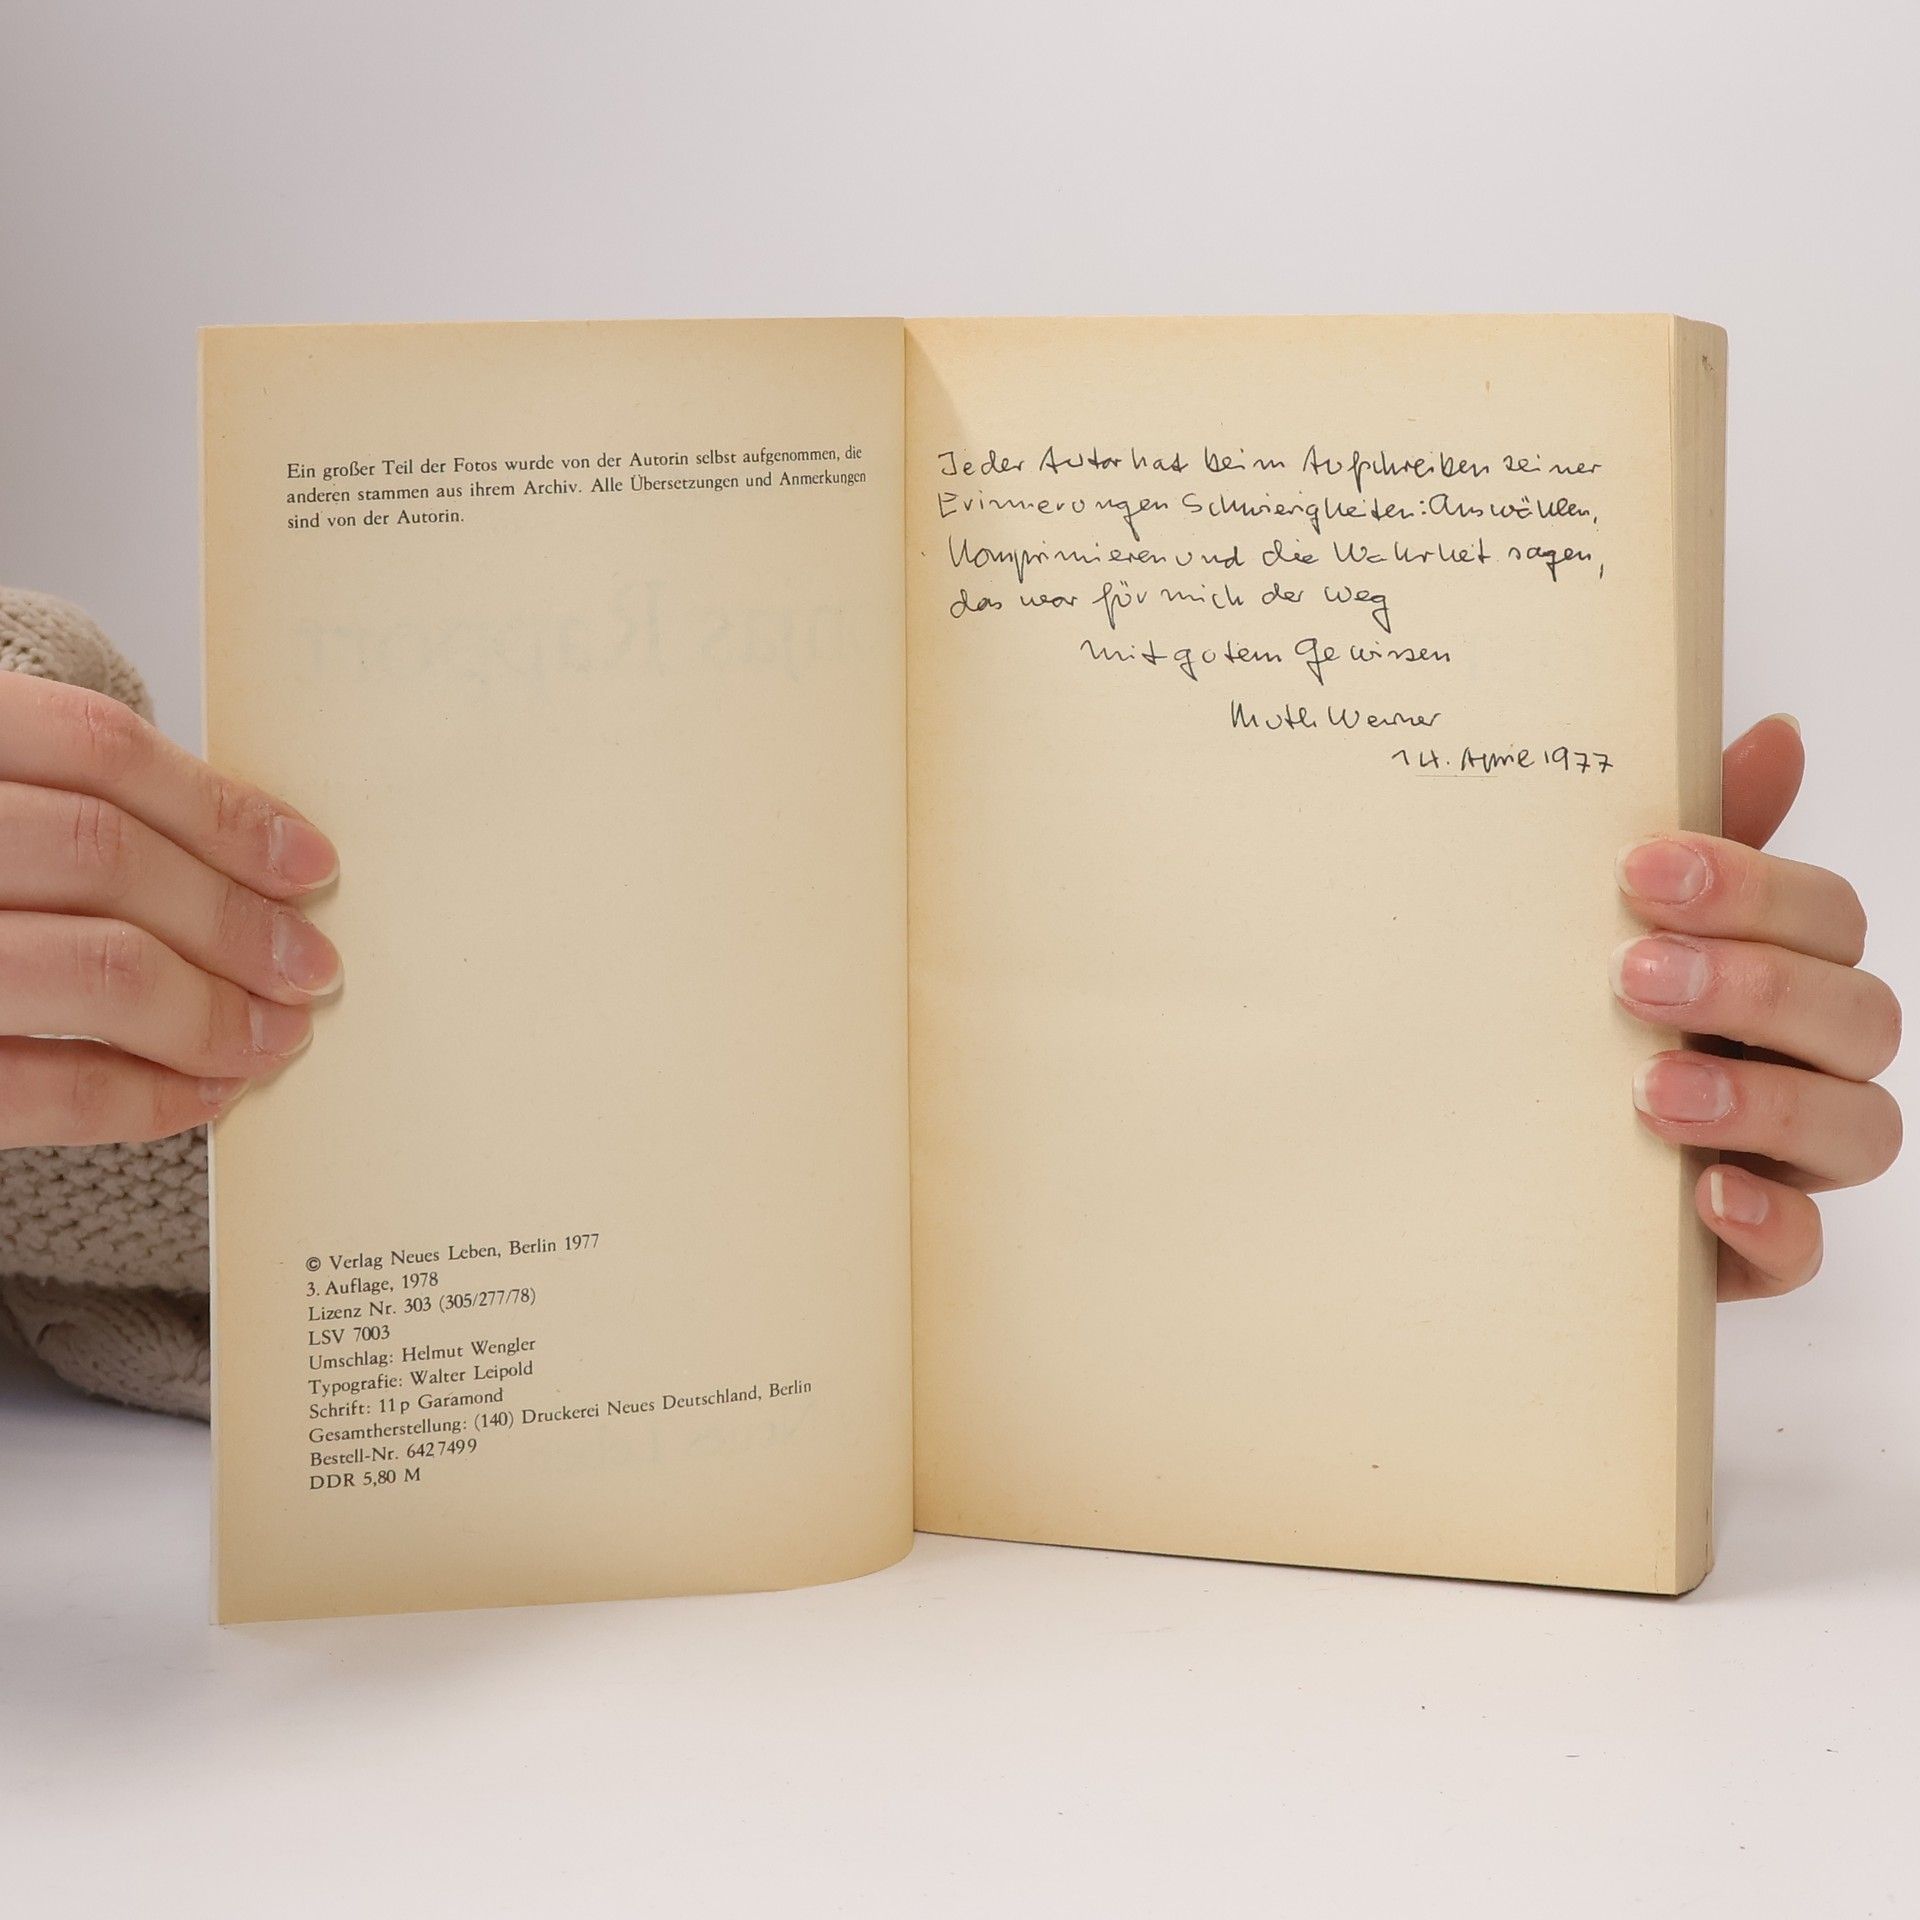 Ein großer Teil der Fotos wurde von der Autorin selbst aufgenommen, die
anderen stammen aus ihrem Archiv. Alle Übersetzungen und Anmerkungen
sind von der Autorin.
© Verlag Neues Leben, Berlin 1977
3. Auflage, 1978
Lizenz Nr. 303 (305/277/78)
LSV 7003
Umschlag: Helmut Wengler
Typografie: Walter Leipold
Schrift: 11p Garamond
Gesamtherstellung: (140) Druckerei Neues Deutschland, Berlin
Bestell-Nr. 642 749 9
DDR 5,80 M
Jeder Autor hat beim Aufschreiben seiner
Erinnerungen Schwierigkeiten: Auswählen,
Komprimieren und die Wahrheit sagen,
das war für mich der Weg
mit gutem Gewissen
Ruth Werner
14. April 1977